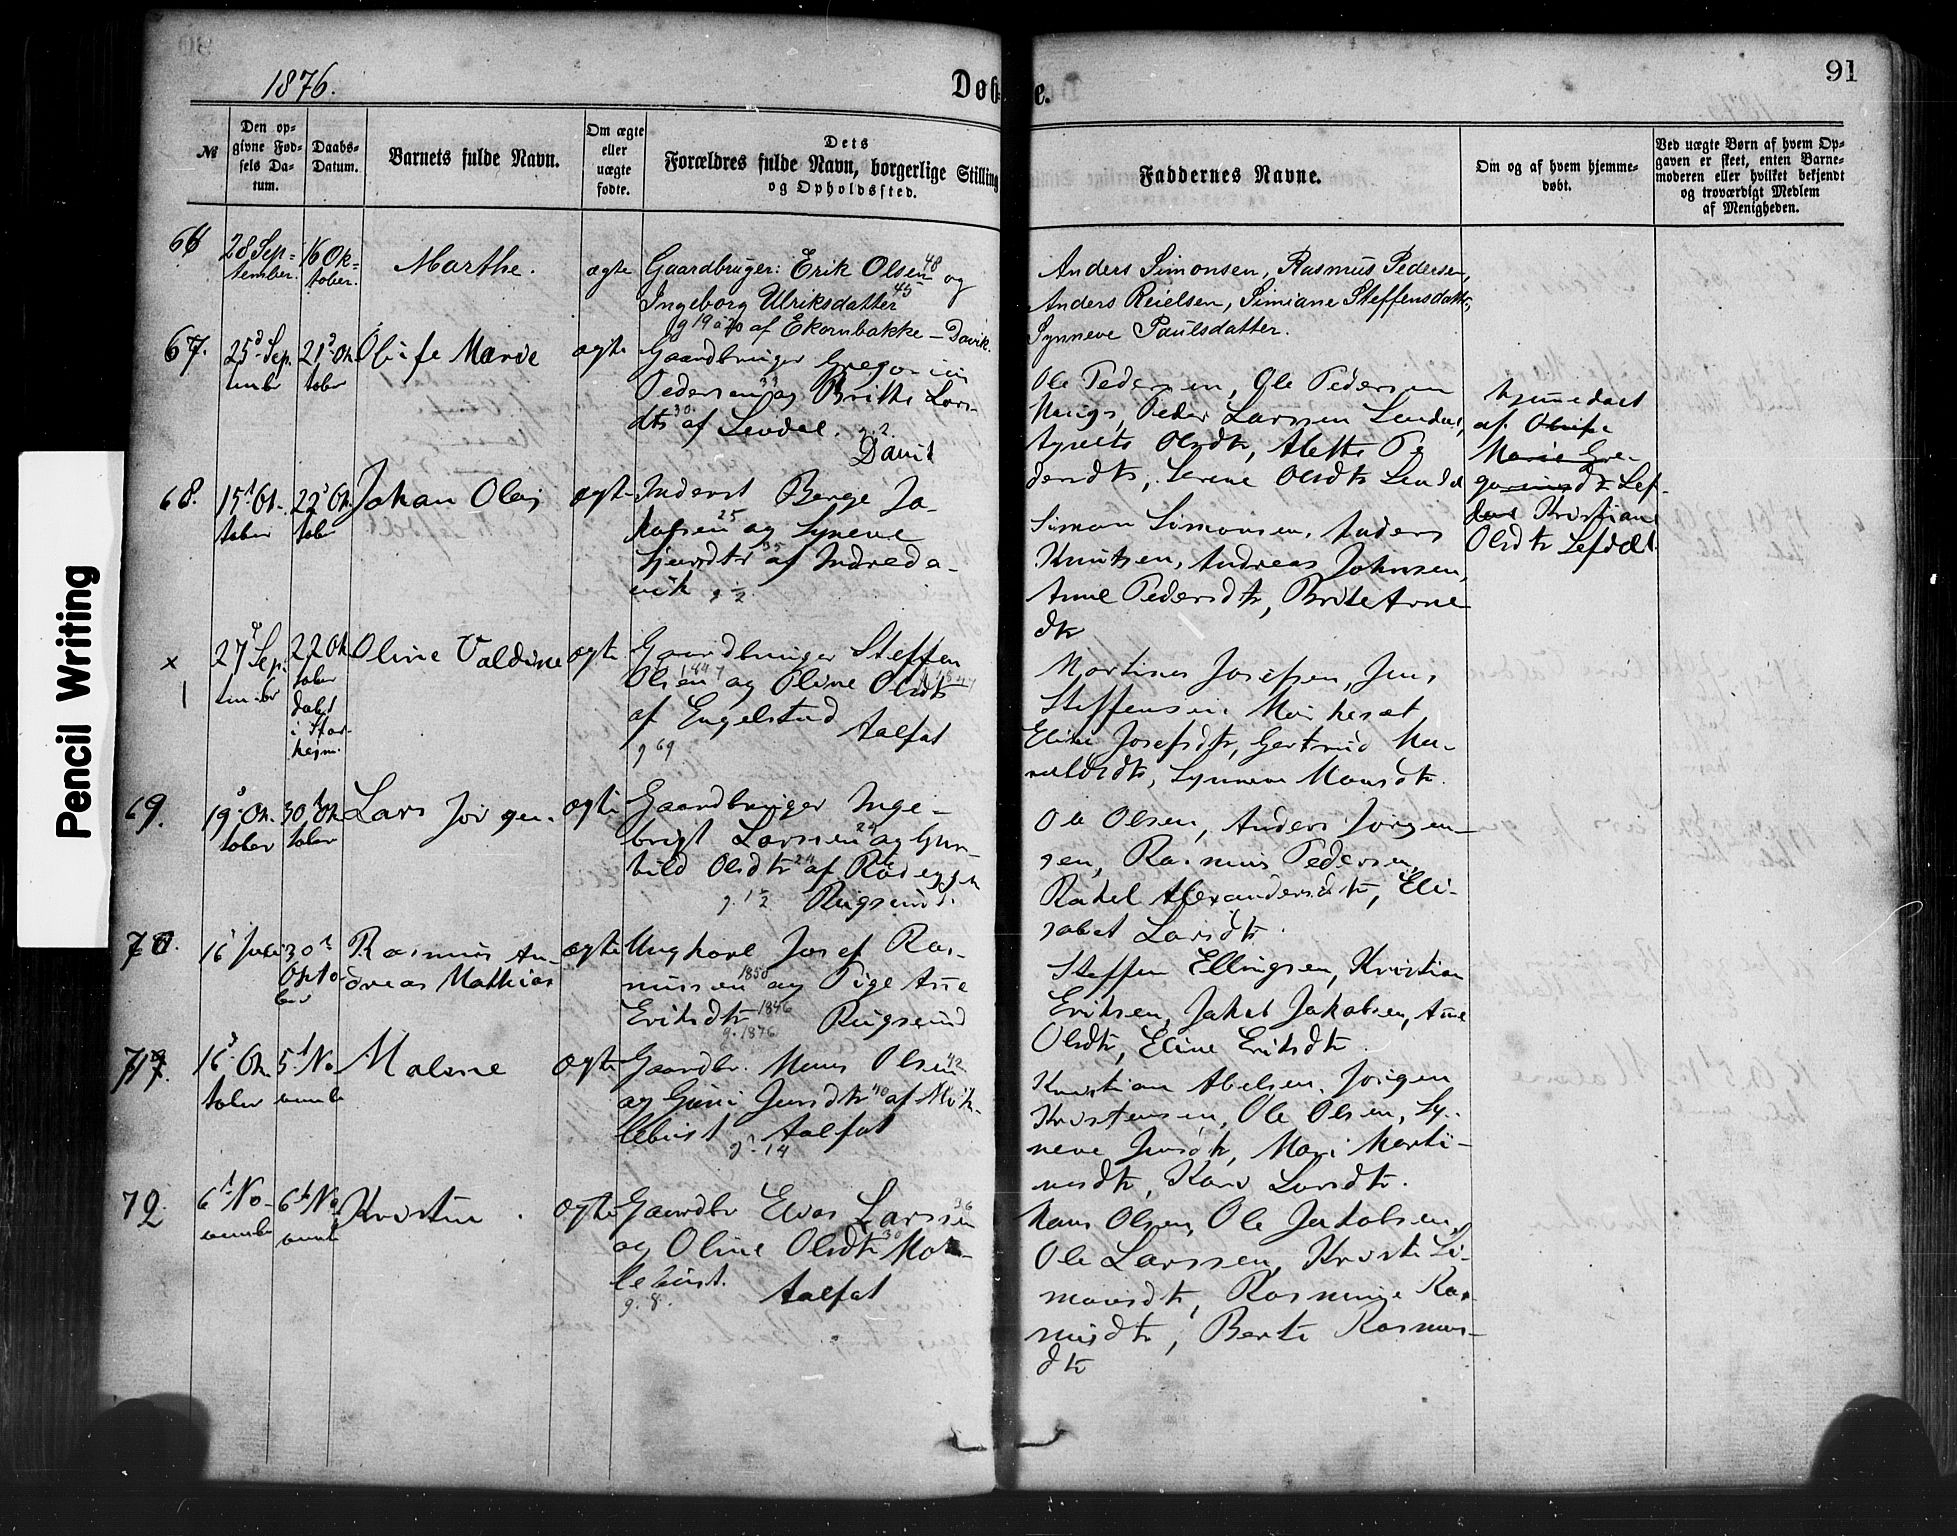 1876.
Døbte.
91
№
Den opgivne Fødsels Datum.
Daabs-Datum.
Barnets fulde Navn.
Om ægte eller uægte fødte.
Dets Forældres fulde Navn, borgerlige Stilling og Opholdssted.
Faddernes Navne.
Om og af hvem hjemmedøbt.
Ved uægte Børn af hvem Opgaven er skeet, enten Barnemoderen eller hvilket bekjendt og troværdigt Medlem af Menigheden.
66
28 Sep=
tember.
16 Ok=
tober.
Marthe.
ægte
Gaardbruger: Erik Olsen 48 og
Ingeborg Ulriksdatter 45
g 19 a 20 af Ekornbakke – Davik.
Anders Simonsen, Rasmus Pedersen,
Anders Reielsen, Simiane Steffensdatter,
Synneve Paulsdatter.
67.
25d Sep.
tember
21d Ok
tober
Olufe Marie
ægte
Gaardbruger Gregorius
Pedersen 33 og Brithe Lars-
dtr 30 af Levdal. g. 2.
Davik
Ole Pedersen, Ole Pedersen
Haugs, Peder Larssen Levdal,
Agnethe Olsdtr, Alethe Pe
dersdtr, Serine Olsdtr Levdal
hjemedøbt
af Olufe
Marie Gre-
goriusdtr Lef-
dal Kristiane
Olsdtr Lefdal
68.
15d Ok-
tober
22d Ok
tober
Johan Olai
ægte
Inderst Berge Jo-
hansen 25 og Synneve
Sjurdtr 35 af Indreda-
vik g 2
Simon Simonsen, Anders
Knutsen, Andreas Johnsen,
Anne Pedersdtr, Brite Arne
dtr
x
1
27d Sep.
tember
22 Ok
tober
Døbt
i Star-
hejm.
Oline Valdine
ægte
Gaardbruger Steffen
Olsen 1844 og Oline Olsdtr
af Engelstad
g 69
Aalfot
Martinus Josefsen, Jens
Steffensen Myrheset,
Eline Josefsdtr, Gertrud Ma-
Synneve Monsdtr.
69.
19d Ok.
tober
30d Ok
tober
Lars Jørgen.
ægte
Gaardbruger Inge-
brigt Larssen 25 og Gun-
hild Olsdtr 24 af Rødeggen
g. 1 2 Rugsund.
Ole Olsen, Anders Jørgen-
sen, Rasmus Pedersen,
Rakel Alexandersdtr, Eli-
sabet Larsdtr.
70.
16 Juli
30d
Okto-
ber
Rasmus An-
dreas Mathias
ægte
Ungkarl Josef Ras-
mussen 1850 og Pige Ane
Eriksdtr 1846 Rugsund
g. 1876
Steffen Ellingsen, Kristian
Eriksen, Jakob Jakobsen, Ane
Olsdtr, Eline Eriksdtr.
71.
16d Ok
tober
5d No
vembr
Malene
ægte
Gaardbr. Mons Olsen 42
og Guri Jensdtr 40 af Myk-
lebust Aalfot
g. 14
Kristian Abelsen, Jørgen
Kristensen, Ole Olsen, Sy-
neve Jensdtr, Mari Marti-
nusdtr, Kari Larsdtr.
72
6d No-
vembr
6d No
vembr
Kristine
ægte
Gaardbr Elias Larssen 36
og Oline Olsdtr 30 Myk-
lebust.
g. 8. Aalfot
Hans Olsen, Ole Jakobsen,
Ole Larssen, Kristi Si-
monsdtr, Rasmine Ras
musdtr, Berte Rasmus-
dtr
Pencil Writing